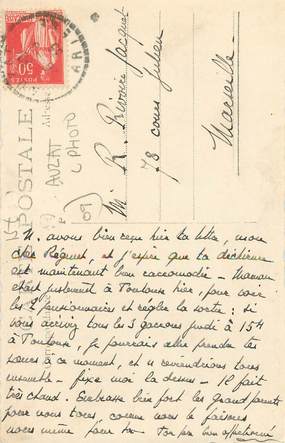 POSTALE
50
POSTES
AUZAT
(PHOTO
09)
M R. Rivière Jacquet
78 cours Julien
Marseille
N. avons bien reçu hier ta lettre, mon
cher Régnet, et j'espère que la déchirure
est maintenant bien raccomodée - Maman
était justement à Toulouse hier, pour voir
les 2 pensionnaires et régler la sortie : si
vous arrivez tous les 3 garçons jeudi à 15h
à Toulouse, je pourrais aller prendre tes
sœurs à ce moment, et n. reviendrions tous
ensemble - fixe moi là dessus - Il fait
très chaud. Embrasse bien fort les grands parents
pour nous tous, comme nous le faisons
nous même pour toi ton papa bien affectionné